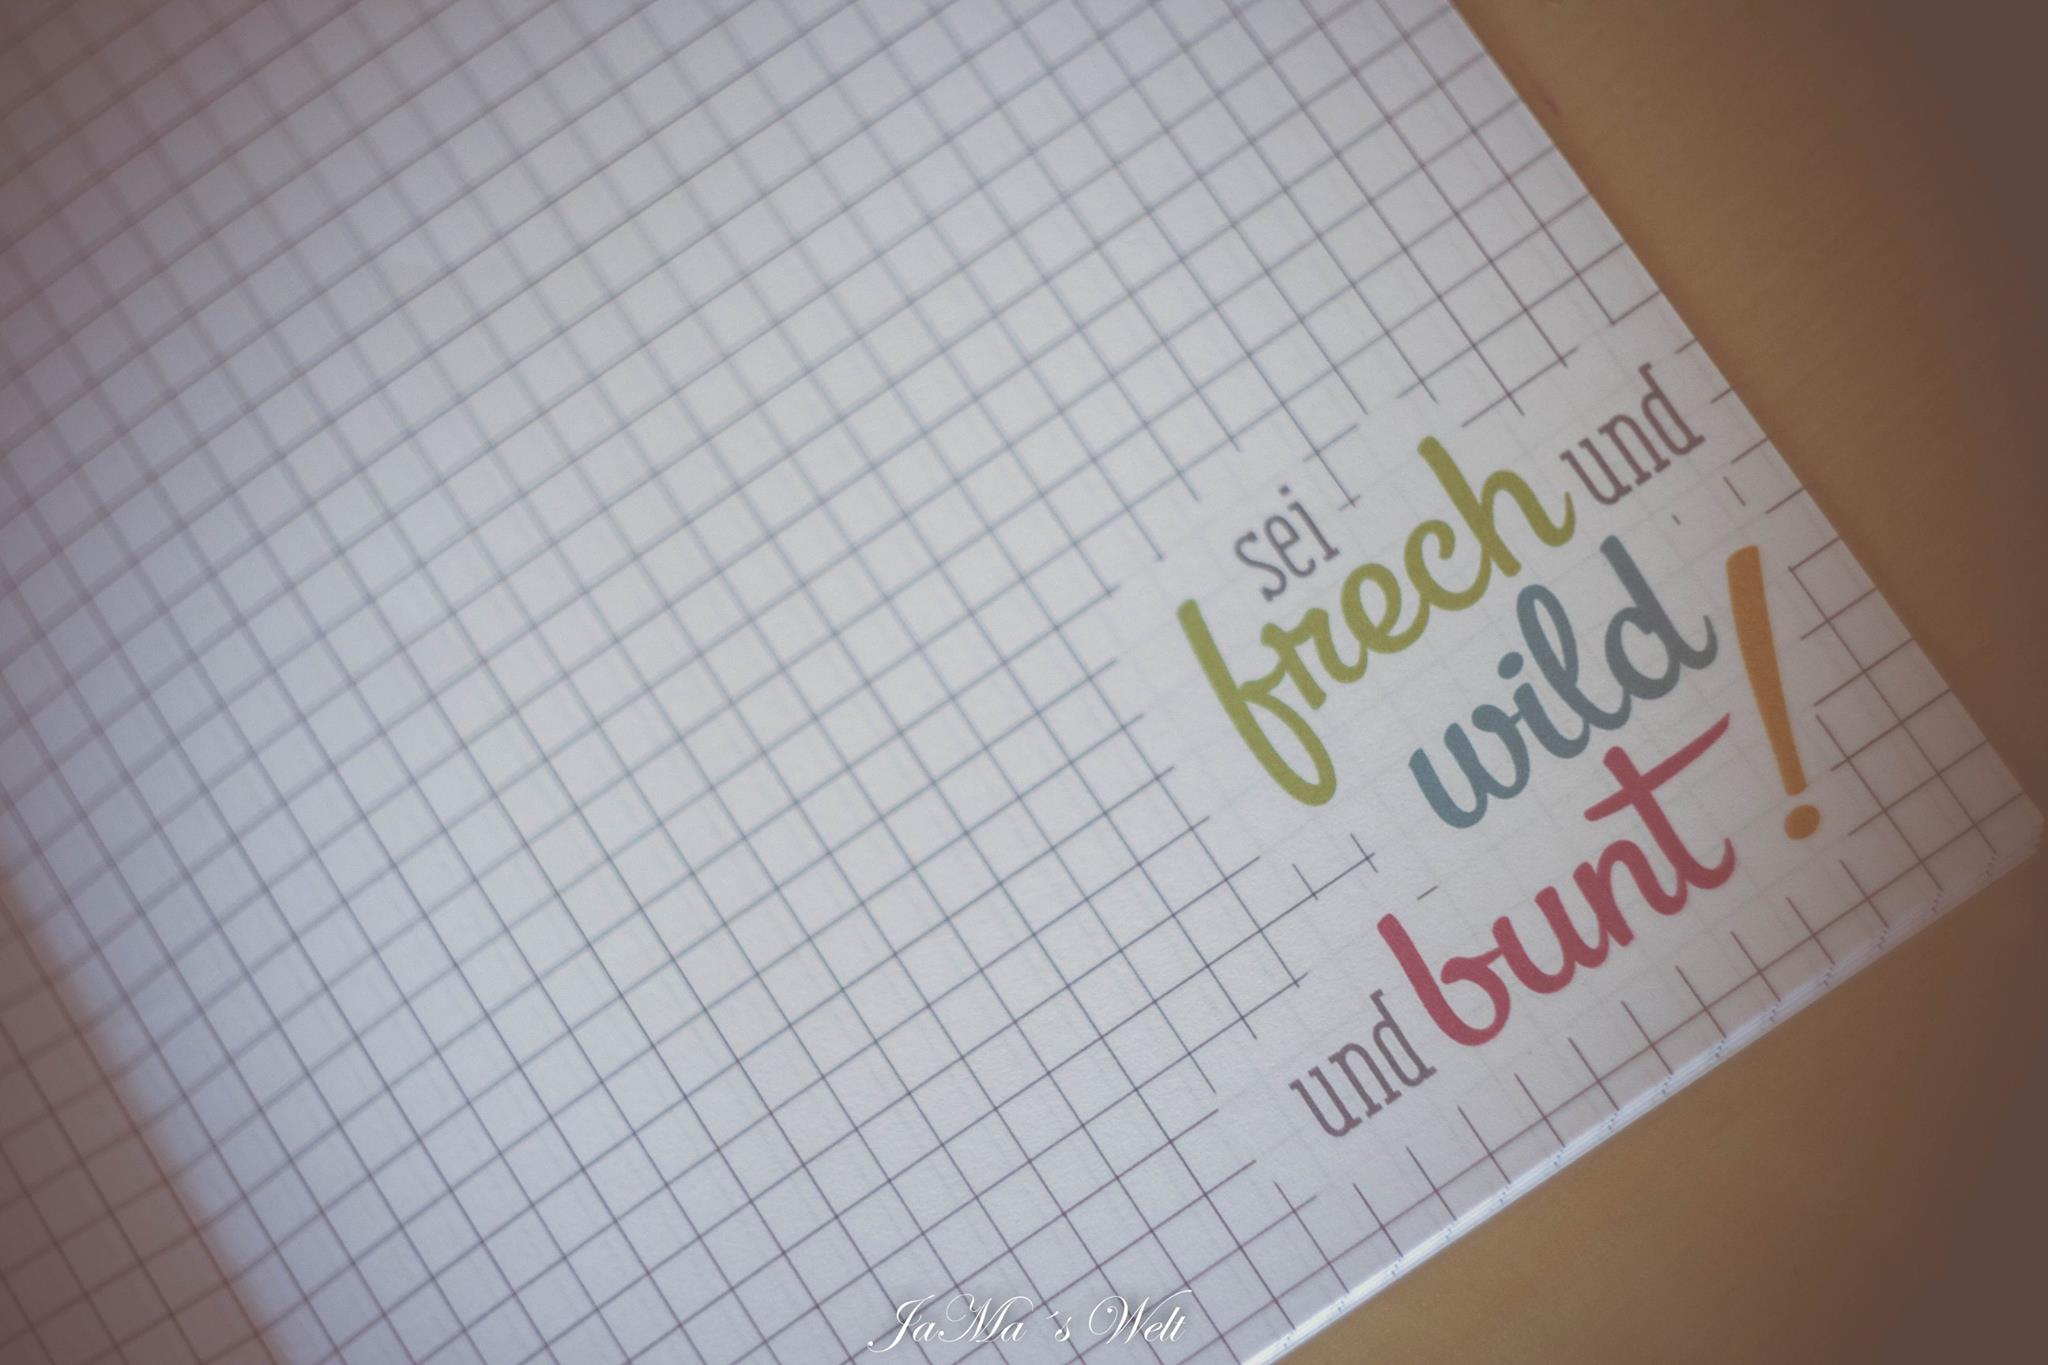 sei frech und
wild
und bunt!
JaMa´s Welt